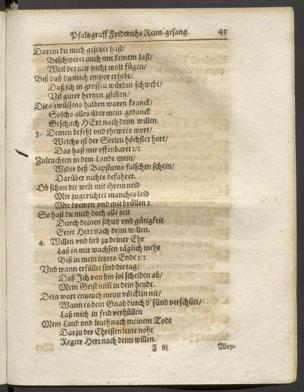 Pfaltzgraff Friderichs Reim-gesang. 45
Darein du mich gesetzet hast/
Beschweret auch mit keinem last/
Weil der nur nicht wolt fügen/
Biß daß du mich empor erhebt/
Daß ich in grossen würden schwebt/
Vil guter hertzen gstillen/
Des gwüssens halden waren kranck/
Solchs alles über mein gedanck
Geschach HErr nach deim willen.
3. Deinen befehl und thewres wort/
Welchs ist der Seelen höchster hort/
Das hast mir offenbaret
Zuleuchten in dem Lande mein/
Wider deß Bapstums falschen schein/
Darüber nichts befahret.
Ob schon die welt mit ihrem neid
Mir zugerichtet manches leid
Mit drewen und mit brüllen
So hast du mich doch alle zeit
Durch deinen schutz und gütigkeit
Erret Herr nach deim willen.
4. Willen und lieb zu deiner Ehr
Laß in mir wachsen täglich mehr
Biß in mein letztes Ende
Und wann erfüllet sind die tag/
Daß Ich von hin sol scheiden ab/
Mein Geist nimm in dein hende.
Dein wort erzeuch meim völcklin nit/
Wann es dein Gnad durch d'sünd verschütt/
Laß mich in frid verhüllen
Mein Land und leuth nach meinem Todt
Darzu der Christen letzte noht
Regier Herr nach deim willen.
F iij Wey-